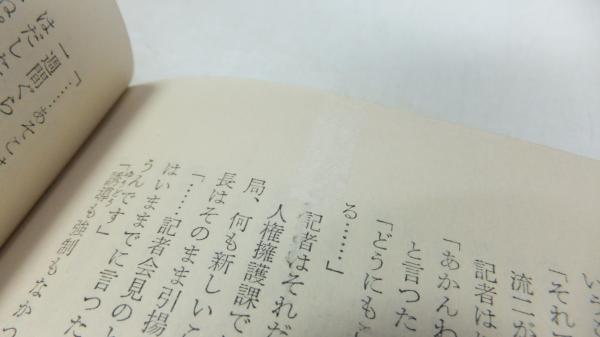 「それ
流二が
記者は
「あかんわ
と言った
「どうにもこ
る……」
記者はそれだ
人権擁護課で
局、何も新しいこ
長はそのまま引揚
「……記者会見の
はいままでに言った
うんです」
「誘導も強制もなかっ
「……あそこ
一週間ぐら
はだした
ね。